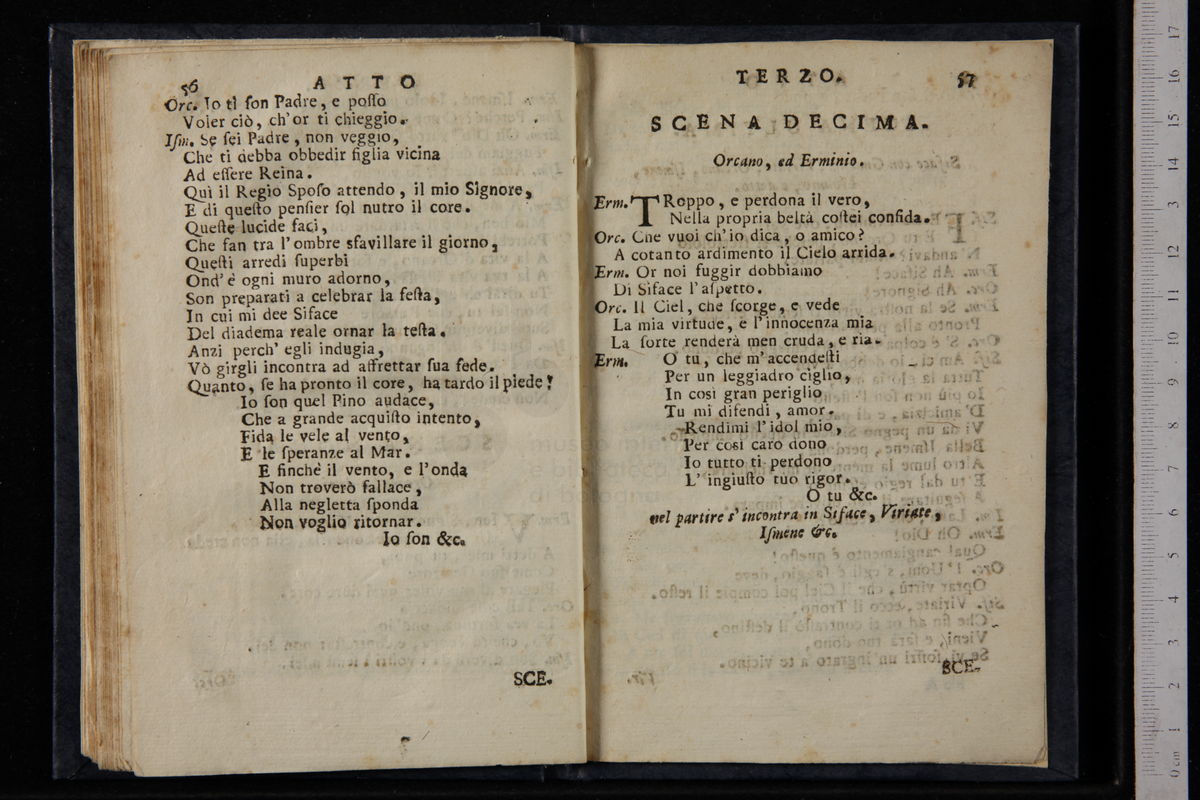 56 ATTO
Orc. Io ti ſon Padre, e poſſo
Voler ciò, ch'or ti chieggio.
Iſm. Se ſei Padre, non veggio,
Che ti debba obbedir figlia vicina
Ad eſſere Reina.
Quì il Regio Spoſo attendo, il mio Signore,
E di queſto penſier ſol nutro il core.
Queſte lucide faci,
Che fan tra l'ombre sfavillare il giorno,
Queſti arredi ſuperbi
Ond'è ogni muro adorno,
Son preparati a celebrar la feſta,
In cui mi dee Siface
Del diadema reale ornar la teſta.
Anzi perch' egli indugia,
Vò girgli incontra ad affrettar ſua fede.
Quanto, ſe ha pronto il core, ha tardo il piede!
Io ſon quel Pino audace,
Che a grande acquiſto intento,
Fida le vele al vento,
E le ſperanze al Mar.
E finchè il vento, e l'onda
Non troverò fallace,
Alla negletta ſponda
Non voglio ritornar.
Io ſon &c.
SCE.
TERZO. 57
SCENA DECIMA.
Orcano, ed Erminio.
Erm. TRoppo, e perdona il vero,
Nella propria beltà coſtei confida.
Orc. Che vuoi ch'io dica, o amico?
A cotanto ardimento il Cielo arrida.
Erm. Or noi fuggir dobbiamo
Di Siface l'aſpetto.
Orc. Il Ciel, che ſcorge, e vede
La mia virtude, e l'innocenza mia
La ſorte renderà men cruda, e ria.
Erm. O tu, che m'accendeſti
Per un leggiadro ciglio,
In così gran periglio
Tu mi difendi, amor.
Rendimi l'idol mio,
Per così caro dono
Io tutto ti perdono
L' ingiuſto tuo rigor.
O tu &c.
nel partire s' incontra in Siface, Viriate,
Iſmene &c.
SCE-